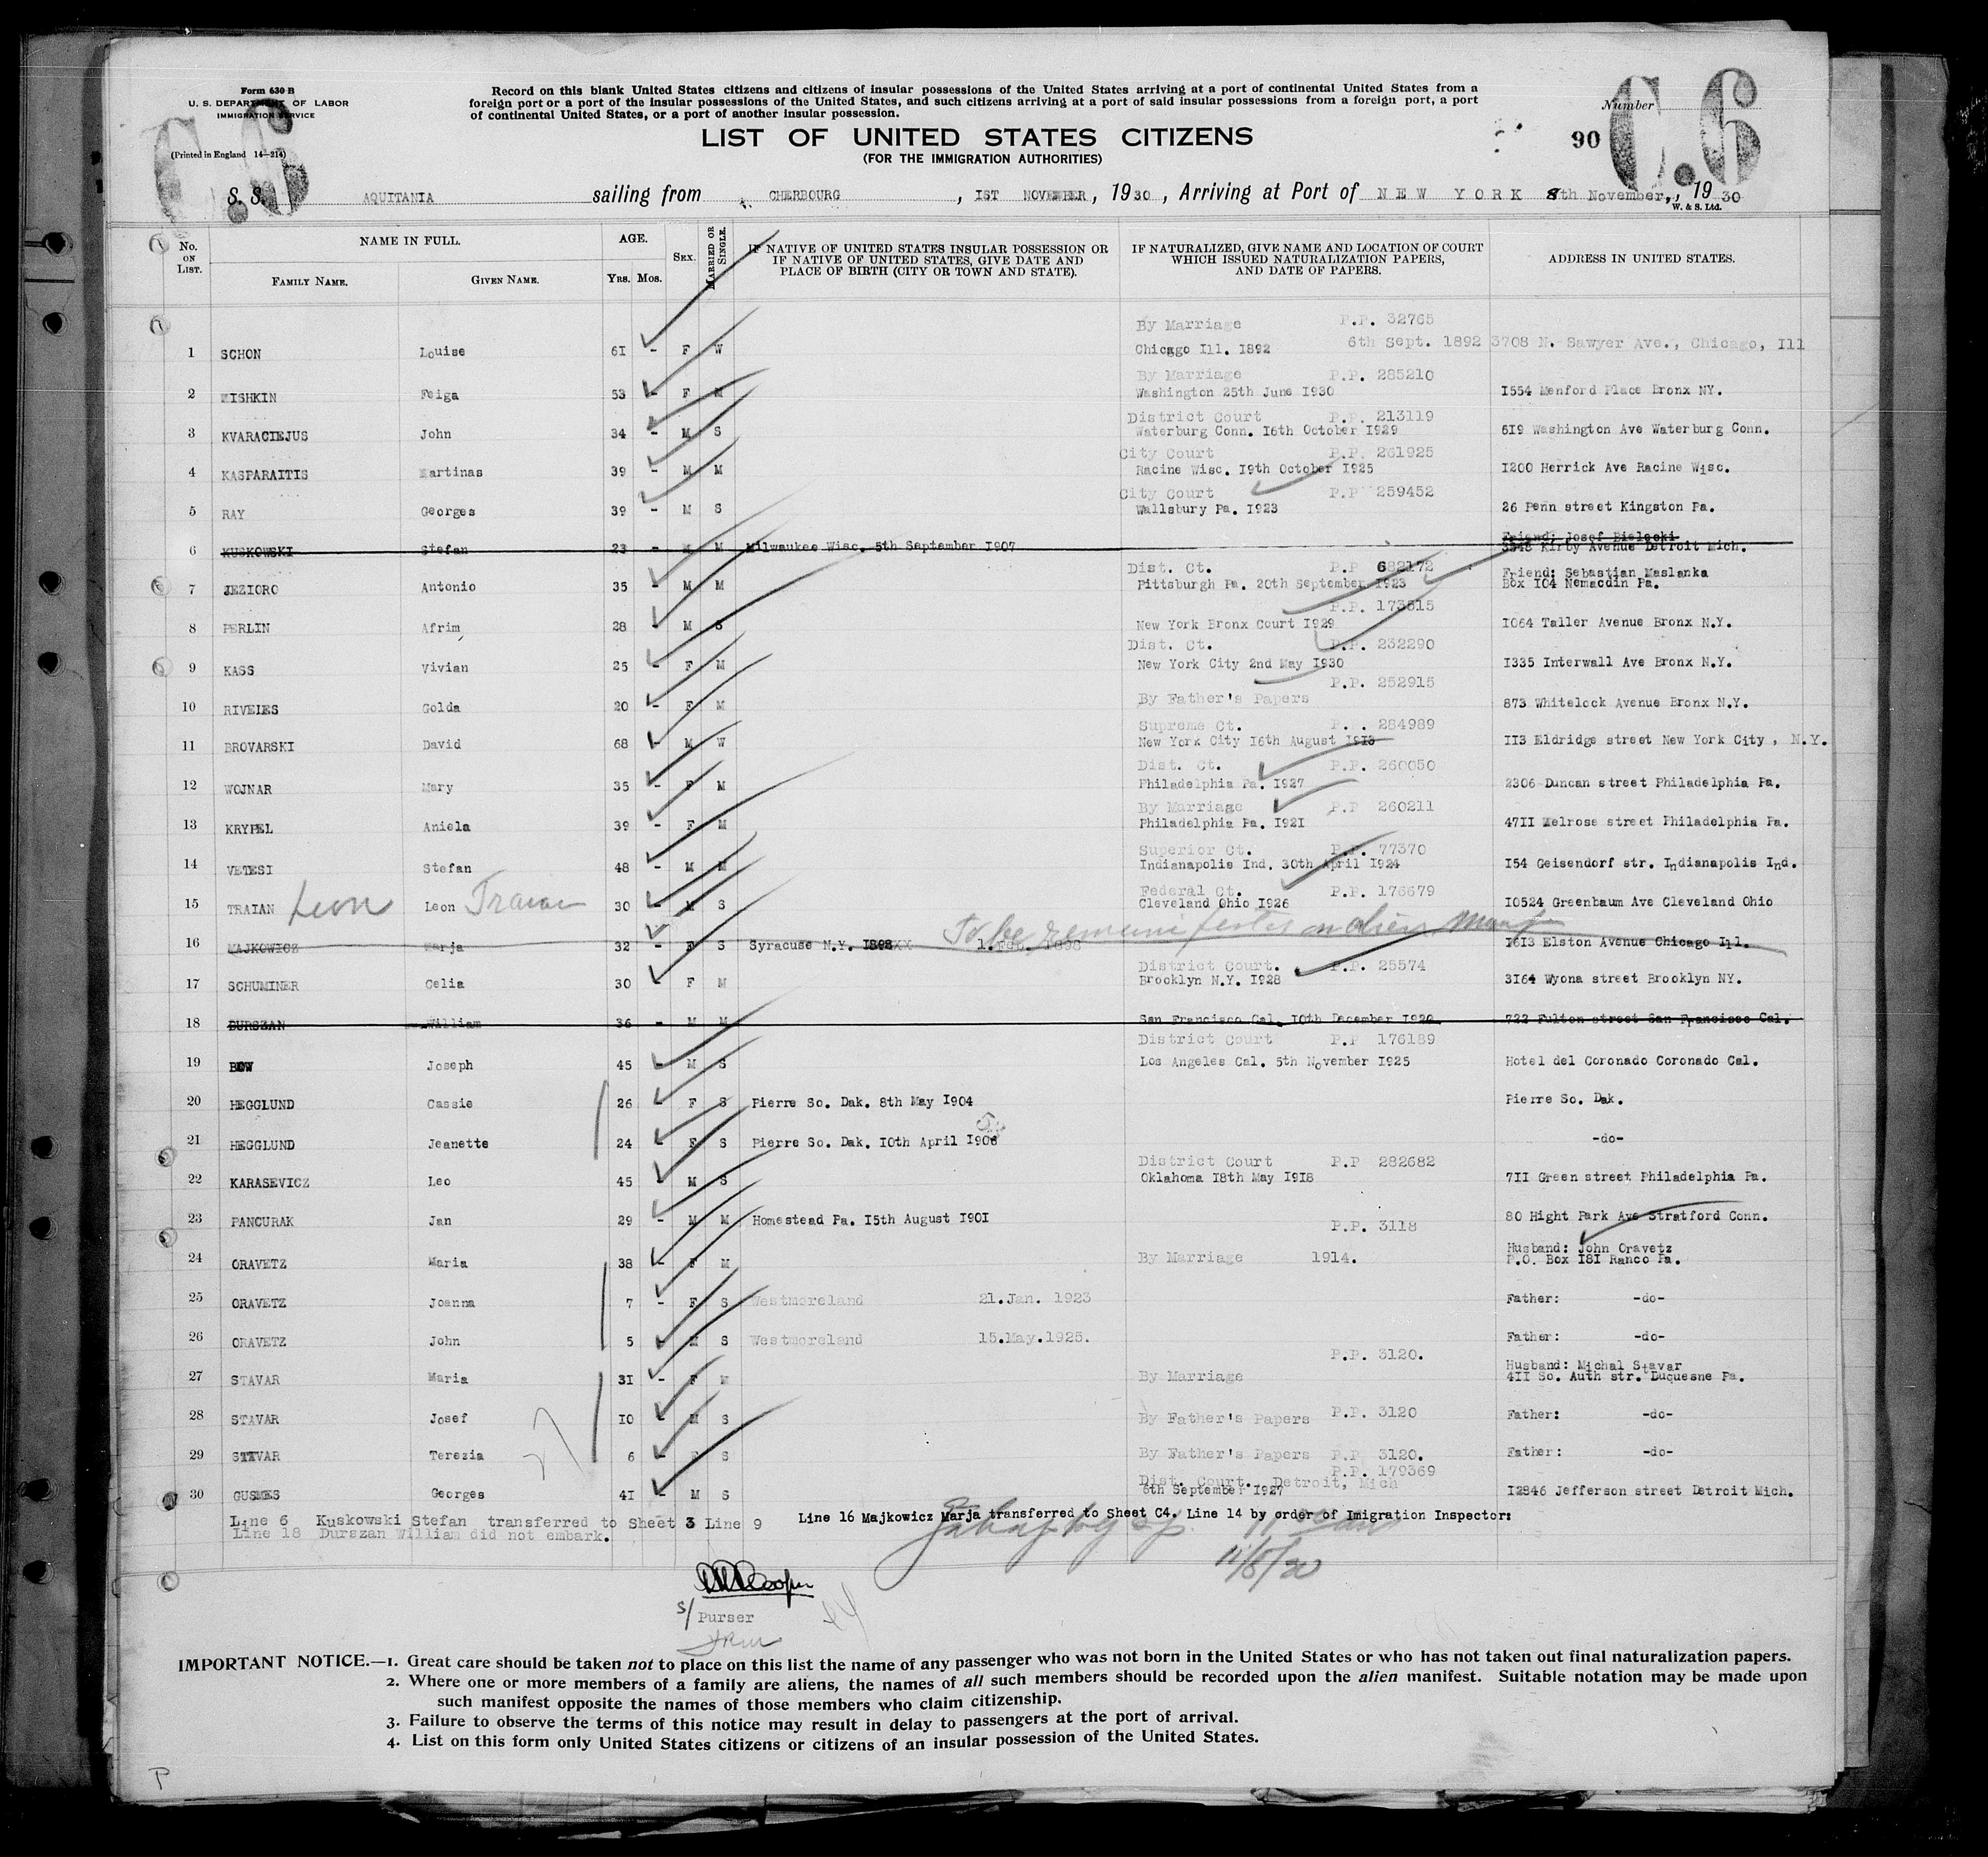 Form 630 B
U. S. DEPARTMENT OF LABOR
IMMIGRATION SERVICE
(Printed in England 14—214)
C.6
Record on this blank United States citizens and citizens of insular possessions of the United States arriving at a port of continental United States from a
foreign port or a port of the insular possessions of the United States, and such citizens arriving at a port of said insular possessions from a foreign port, a port
of continental United States, or a port of another insular possession.
LIST OF UNITED STATES CITIZENS
(FOR THE IMMIGRATION AUTHORITIES)
Number
90
C.6
S. S. AQUITANIA sailing from CHERBOURG, IST NOVEMBER, 1930, Arriving at Port of NEW YORK 8th November, 1930
W. & S. Ltd.
No. ON LIST. NAME IN FULL. FAMILY NAME. GIVEN NAME. AGE. YRS. MOS. SEX. MARRIED OR SINGLE. IF NATIVE OF UNITED STATES INSULAR POSSESSION OR IF NATIVE OF UNITED STATES, GIVE DATE AND PLACE OF BIRTH (CITY OR TOWN AND STATE). IF NATURALIZED, GIVE NAME AND LOCATION OF COURT WHICH ISSUED NATURALIZATION PAPERS, AND DATE OF PAPERS. ADDRESS IN UNITED STATES.
By Marriage P.P. 32765
1 SCHON Louise 61 - F W Chicago Ill. 1892 6th Sept. 1892 3708 N. Sawyer Ave., Chicago, Ill
By Marriage P.P. 285210
2 MISHKIN Feiga 53 - F M Washington 25th June I930 I554 Menford Place Bronx NY.
District Court P.P. 213119
3 KVARACIEJUS John 34 - M S Waterburg Conn. I6th October I929 6I9 Washington Ave Waterburg Conn.
City Court P.P. 261925
4 KASPARAITIS Martinas 39 - M M Racine Wisc. I9th October I925 I200 Herrick Ave Racine Wisc.
City Court P.P 259452
5 RAY Georges 39 - M S Wallsbury Pa. I923 26 Penn street Kingston Pa.
Friend: Josef Bielecki
6 KUSKOWSKI Stefan 23 - M M Milwaukee Wisc. 5th September I907 3548 Kirby Avenue Detroit Mich.
Dist. Ct. P.P 682172 Friend: Sebastian Maslanka
7 JEZIORO Antonio 35 - M M Pittsburgh Pa. 20th September I923 Box I04 Nemacdin Pa.
P.P. 173615
8 PERLIN Afrim 28 - M S New York Bronx Court I929 I064 Taller Avenue Bronx N.Y.
Dist. Ct. P.P. 232290
9 KASS Vivian 25 - F M New York City 2nd May I930 I335 Interwall Ave Bronx N.Y.
P.P. 252915
10 RIVELES Golda 20 - F M By Father's Papers 873 Whitelock Avenue Bronx N.Y.
Supreme Ct. P.. 284989
11 BROVARSKI David 68 - M W New York City I6th August I9I3 II3 Eldridge street New York City, N.Y.
Dist. Ct. P.P. 260050
12 WOJNAR Mary 35 - F M Philadelphia Pa. I927 2306 Duncan street Philadelphia Pa.
By Marriage P.P 260211
13 KRYPEL Aniela 39 - F M Philadelphia Pa. I92I 47II Melrose street Philadelphia Pa.
Superior Ct. P.P. 77370
14 VETESI Stefan 48 - M M Indianapolis Ind. 30th April I924 I54 Geisendorf str. Indianapolis Ind.
Federal Ct. P.P. 176679
15 TRAIAN Leon Leon Traian 30 - M S Cleveland Ohio I926 I0524 Greenbaum Ave Cleveland Ohio
To be remanifested on alien manif
16 MAJKOWICZ Marja 32 - F S Syracuse N.Y. I898XX 1. Feb. 1898 I6I3 Elston Avenue Chicago Ill.
District Court. P.P. 25574
17 SCHUMINER Celia 30 - F M Brooklyn N.Y. I928 3I64 Wyona street Brooklyn NY.
18 DURSZAN William 36 - M M San Francisco Cal. I0th December I920 722 Fulton street San Francisco Cal.
District Court P.P 176189
19 BOW Joseph 45 - M S Los Angeles Cal. 5th November I925 Hotel del Coronado Coronado Cal.
20 HEGGLUND Cassie 26 - F S Pierre So. Dak. 8th May I904 Pierre So. Dak.
21 HEGGLUND Jeanette 24 - F S Pierre So. Dak. I0th April I906 -do-
District Court P.P 282682
22 KARASEVICZ Leo 45 - M S Oklahoma I8th May I9I8 7II Green street Philadelphia Pa.
23 PANCURAK Jan 29 - M M Homestead Pa. I5th August I90I 80 Hight Park Ave Stratford Conn.
P.P. 3118
Husband: John Oravetz
24 ORAVETZ Maria 38 - F M By Marriage 1914. P.O. Box I8I Ranco Pa.
25 ORAVETZ Joanna 7 - F S Westmoreland 21.Jan. 1923 Father: -do-
26 ORAVETZ John 5 - M S Westmoreland 15.May.1925. Father: -do-
P.P. 3120. Husband: Michal Stavar
27 STAVAR Maria 3I - F M By Marriage 4II So. Auth str. Duquesne Pa.
28 STAVAR Josef I0 - M S By Father's Papers P.P. 3120 Father: -do-
29 STAVAR Terezia 6 - F S By Father's Papers P.P 3120. Father: -do-
Dist. Court. Detroit, Mich P.P. 179369
30 GUSMES Georges 4I - M S 6th September I927 I2846 Jefferson street Detroit Mich.
Line 6 Kuskowski Stefan transferred to Sheet 3 Line 9 Line 16 Majkowicz Marja transferred to Sheet C4. Line 14 by order of Imigration Inspector:
Line 18 Durszan William did not embark.
11/8/30
Cooper
s/ Purser
IMPORTANT NOTICE.—1. Great care should be taken not to place on this list the name of any passenger who was not born in the United States or who has not taken out final naturalization papers.
2. Where one or more members of a family are aliens, the names of all such members should be recorded upon the alien manifest. Suitable notation may be made upon
such manifest opposite the names of those members who claim citizenship.
3. Failure to observe the terms of this notice may result in delay to passengers at the port of arrival.
4. List on this form only United States citizens or citizens of an insular possession of the United States.
P